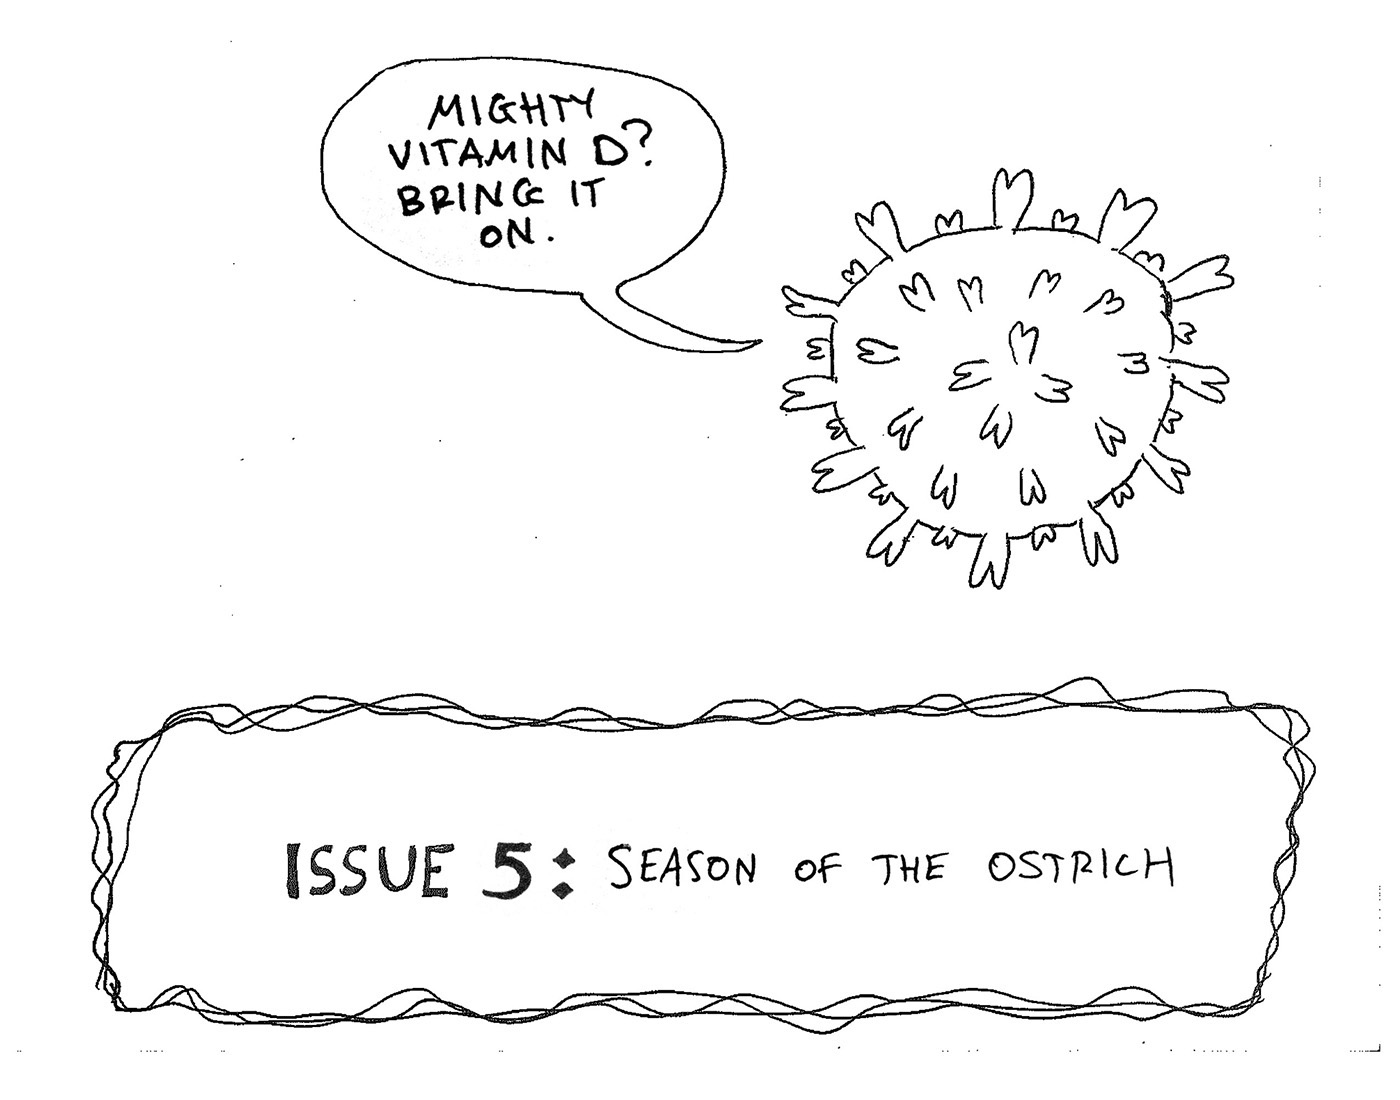 MIGHTY
VITAMIN D?
BRING IT
ON.
ISSUE 5: SEASON OF THE OSTRICH